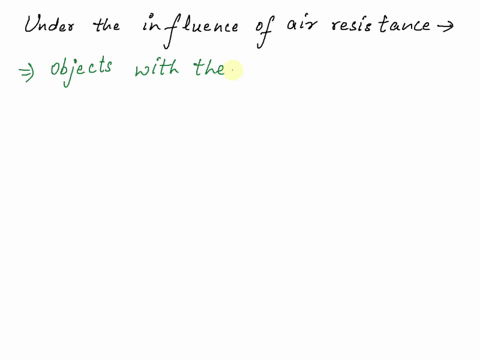 Under the influence of air resistance →
⇒ Objects with the